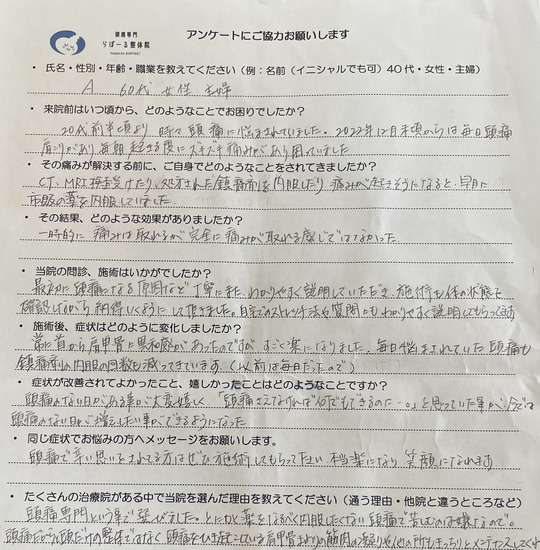 頭痛専門
りばーる整体院
アンケートにご協力お願いします
・ 氏名・性別・年齢・職業を教えてください（例：名前（イニシャルでも可）４０代・女性・主婦）
A 60代 女性 主婦
・ 来院前はいつ頃から、どのようなことでお困りでしたか？
20代前半頃より 時々頭痛に悩まされていました。2022年12月末頃からは毎日頭痛
肩こりがあり毎朝起きる度にズキズキ痛みがあり困っていました
・ その痛みが解決する前に、ご自身でどのようなことをされてきましたか？
CT、MRI検査受けたり、処方された鎮痛剤を内服したり 痛みが起きそうになると、早目に
市販の薬を内服していました。
・ その結果、どのような効果がありましたか？
一時的に痛みは取れるが完全に痛みが取れる感じではなかった
・ 当院の問診、施術はいかがでしたか？
最初に頭痛になる原因など丁寧にまた、わかりやすく説明していただき、施術も体の状態を
確認しながら納得いくようにして頂きました。自宅でのストレッチ法や質問にもわかりやすく説明してもらってます
・ 施術後、症状はどのように変化しましたか？
常に首から肩甲骨に違和感があったのですが すごく楽になりました。毎日悩まされていた頭痛も
鎮痛剤の内服の回数も減ってきています。（以前は毎日だったので）
・ 症状が改善されてよかったこと、嬉しかったことはどのようなことですか？
頭痛のない日がある事が大変嬉しく「頭痛さえなければ何でもできるのに…。」と思っていた事が今では
頭痛のない日が増えたし色んな事ができるようになった
・ 同じ症状でお悩みの方へメッセージをお願いします。
頭痛で辛い思いをされてる方はぜひ施術してもらって下さい 本当楽になり 笑顔になれます
・ たくさんの治療院がある中で当院を選んだ理由を教えてください（通う理由・他院と違うところなど）
頭痛専門という事で選びました。とにかく薬をなるべく内服したくない頭痛で苦しむのは嫌なので。
頭痛だから頭だけの整体ではなく 頭痛をひき起こしている肩甲骨まわりの筋肉の凝りや他の所もきちっとメンテナンスしてくれ